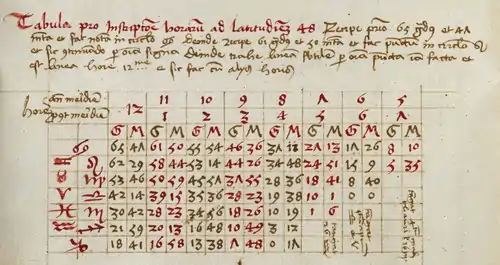 Tabula pro Inscriptōe horarū ad latitudinē 48 Recipe primo 65 gdg et 47
mta et fac nota in circulo ♋ deinde Recipe 61 gdg et 50 mta et fac punctū in circulo ♌
et sic p oīa signa Deinde trahe lineā p oīa puncta iā facta et
est linea hore 12me et sic fac cū alijs horis
hore an meidiem 12 11 10 9 8 7 6 5
post meidiem 1 2 3 4 5 6 7
G M G M G M G M G M G M G M G M
♋ 47 61 50 53 54 46 36 12 27 13 17 26 8 10
♌ 62 29 58 44 53 14 44 26 34 48 24 51 15 9 5 35
♍ 53 46 50 59 45 57 37 55 28 36 18 41 8 40
♈ 42 14 39 15 35 36 28 23 19 38 10 1 0 0
♓ ♏ 30 42 28 23 34 56 18 26 10 19 1 6
21 59 20 13 16 48 10 49 3 13
♑ 18 41 16 58 13 38 7 48 0 17